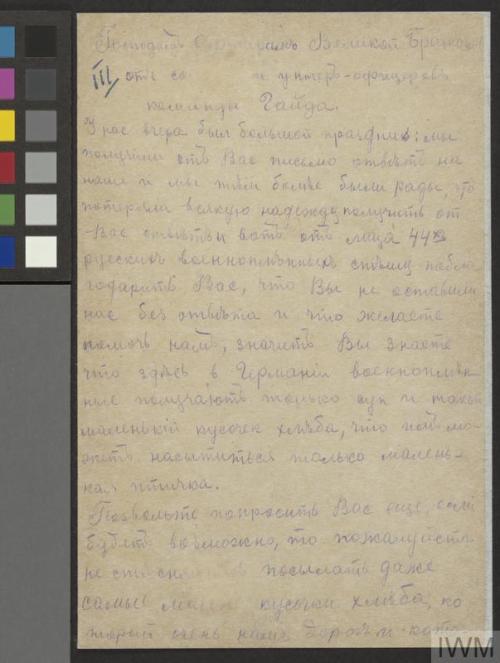 Господамъ Офицерамъ Великой Британ
III отъ со и унтеръ-офицеровъ
команды Гайда.
У нас вчера был большой праздник: мы
получили отъ Вас письмо отвѣтъ на
наше и мы тѣм более были рады, что
потеряли всякую надежду получить от
Вас отвѣтъ и вотъ отъ лица 448
русских военноплѣнных спѣшу побла
годарить Вас, что Вы не оставили
нас без отвѣта и что желаете
помочь намъ, значитъ Вы знаете
что здѣсь в Германiи военноплѣн
ные получаютъ только суп и такой
маленькiй кусочек хлѣба, что имъ мо-
жетъ насытиться только малень-
кая птичка.
Позвольте попросить Вас еще, если
будетъ возможно, то пожалуйста
не посылать даже
самые кусочки хлѣба, ко
торый очень намъ дорог и
IWM